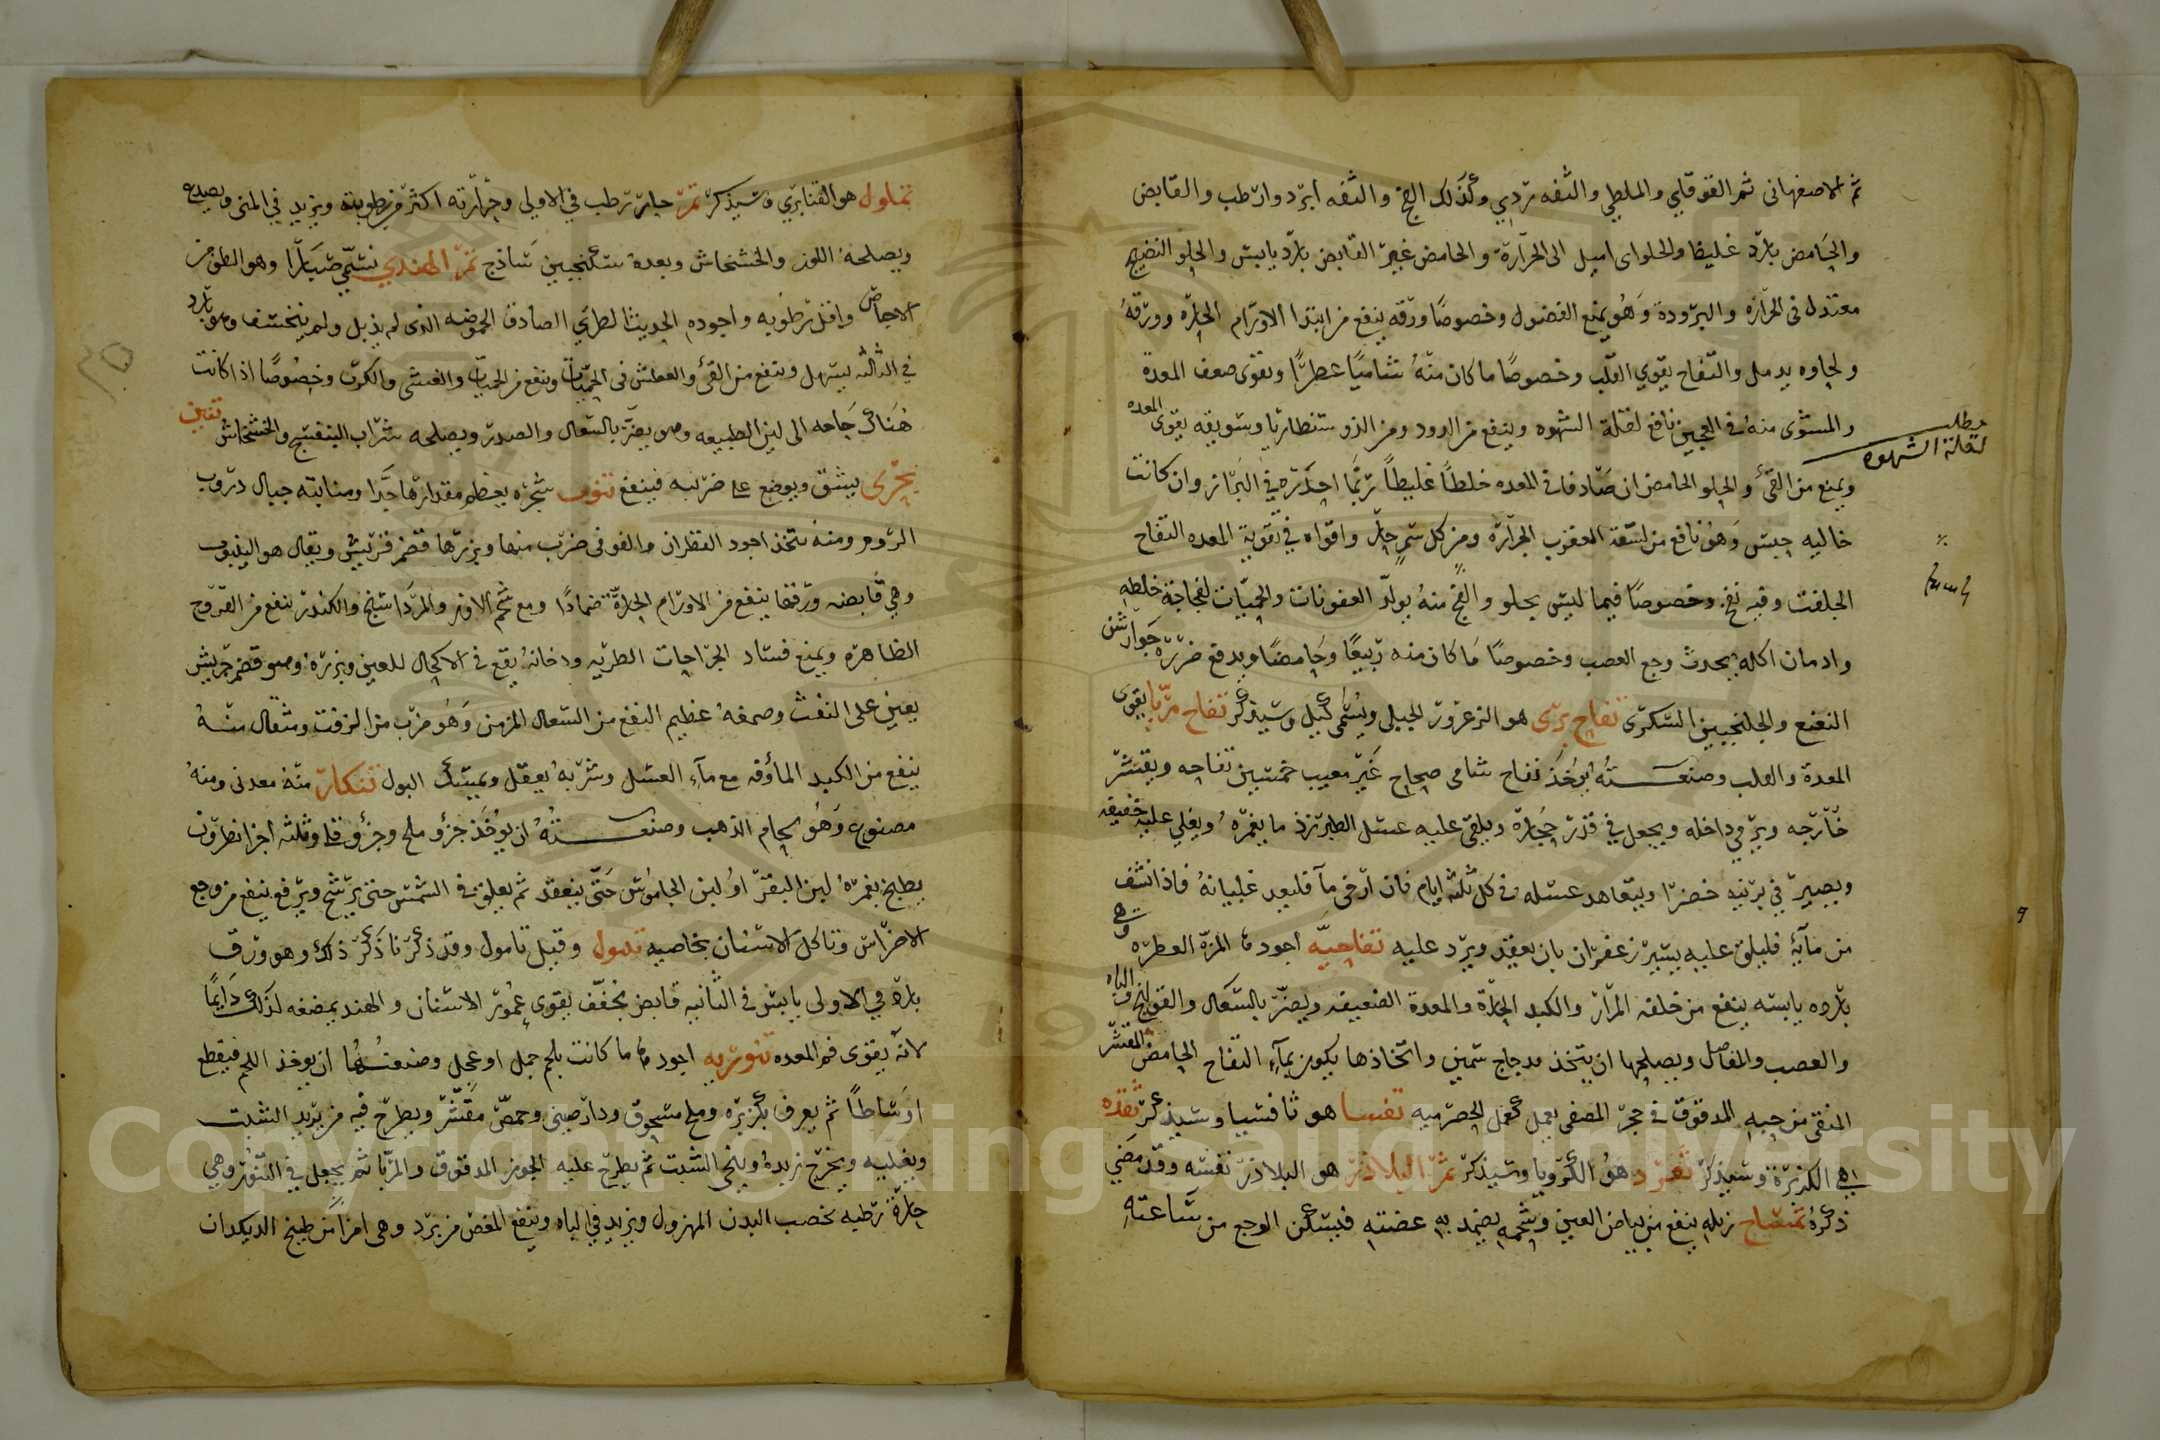 ثم الاصفهاني ثم القوقاي والملطي والتفه ردي وكذلك الفج والتفه ابرد وارطب والقابض
والحامض بارد غليظا والحلواى اميل الى الحرارة والحامض غير القابض بارد يابس والحلو النضيج
معتدل فى الحرارة والبرودة وهو يمنع الفضول وخصوصا ورقه ينفع من ابتدا الاورام الحارة وورقه
ولحاوه يدمل والتفاح يقوي القلب وخصوصا ما كان منه شاميا عطرا ويقوى ضعف المعدة
والمشوى منه فى العجين نافع لقلة الشهوه وينفع من الدود ومن الذوسنطاريا وسويقه يقوى المعده
مطلب
لقلة الشهوه
ويمنع من القئ والحلو الحامض ان صادف فى المعده خلطا غليظا ربما احدره في البراز وان كانت
خاليه حبس وهو نافع من لسعة العقرب الجرارة ومن كل سم حار واقواه في تقوية المعده التفاح
الجلفت وفيه نفخ وخصوصا فيما ليس بحلو والفج منه يولد العفونات والحميات لفجاجة خلطه
وادمان اكله يحدث وجع العصب وخصوصا ما كان منه ربيعا وحامضا ويدفع ضرره جوارشن
النعنع والجلنجبين السكرى تفاح برى هو الزعرور الجبلى ويسمى كيل وسيذكر تفاح مربا يقوى
المعدة والقلب وصنعته يوخذ تفاح شامى صحاح غير معيب خمسين تفاحه ويقشر
خارجه ويرمي داخله ويجعل في قدر حجارة ويلقى عليه عسل الطبرزذ ما يغمره ويغلى عليه خفيفه
ويصير في برنيه خضرا ويتعاهد عسله فى كل ثلثه ايام فان ارخى مآ فليعد غليانه فاذا نشف
من مآيه فليلق عليه يسير زعفران بان يعقد ويرد عليه تفاحيه اجودها المزة العطره وهى
بارده يابسه ينفع من خلفه المرار والكبد الحارة والمعدة الضعيفه ويضر بالسعال والقولنج والباه
والعصب والمفاصل ويصلحها ان يتخذ بدجاج سمين واتخاذها يكون بمآء التفاح الحامض المقشر
المنقى من حبه المدقوق فى حجر المصفى يعمل كعمل الحصرميه تفسيا هو ثافسيا وسيذكر تقده
هي الكزبرة وسيذكر تقرد هو الكرويا وسيذكر ثمر البلاذر هو البلاذر نفسه وقد مضي
ذكره تمساح زبله ينفع من بياض العين وشحمه يضمد به عضته فيسكن الوجع من ساعته
تملول هو القنابري وسيذكر تمر حار رطب في الاولي وحرارته اكثر من رطوبته ويزيد في المنى ويصدع
ويصلحه اللوز والخشخاش وبعده سكنجبين ساذج تمر الهندي يسمي صبارا وهو الطف من
الاجاص واقل رطوبه واجوده الحديث الطري الصادق الحموضه الذى لم يذبل ولم يتخشف وهو بارد
في الثالثه يسهل وينفع من القئ والعطش فى الحميات وينفع من الحميات والغشى والكرب وخصوصا اذا كانت
هناك حاجه الى لين الطبيعه وهو يضر بالسعال والصدر ويصلحه شراب البنفسج والخشخاش تنين
بحرى يشق ويوضع على ضربه فينفع تنوب شجره يعظم مقدارها جدا ومنابته جبال دروب
الروم ومنه يتخذ اجود القطران والفوفى ضرب منها وبزرها قضم قريش ويقال هو الينبوب
وهي قابضه ورقها ينفع من الاورام الحارة ضمادا ومع شحم الاوز والمرداسنج والكندر ينفع من القروح
الظاهرة ويمنع فساد الجراحات الطريه ودخانه يقع فى الاكحال للعين وبزره وهو قضم قريش
يعين على النفث وصمغه عظيم النفع من السعال المزمن وهو ضرب من الزفت ومثقال منه
ينفع من الكبد المأوفه مع مآء العسل وشربه يعقل ويمسك البول تنكار منه معدنى ومنه
مصنوع وهو لحام الذهب وصنعته ان يوخذ جزؤ ملح وجزؤ قلا وثلثه اجزا نطرون
يطبخ بغمره لبن البقر او لبن الجاموس حتى ينعقد ثم يعلق فى الشمس حتى يرشح ويرفع ينفع من وجع
الاضراس وتاكل الاسنان بخاصيه تنبول وقيل تامول وقد ذكرنا ذكر ذلك وهو ورق
بارد في الاولى يابس فى الثانيه قابض مجفف يقوى عمور الاسنان والهند يمضغه لذلك دايما
لانه يقوى فم المعده تنوريه اجودها ما كانت بلحم جمل او عجل وصنعتها ان يوخذ اللحم فيقطع
اوساطا ثم يعرق بكزبره وملح مسحوق ودارصيني وحمص مقشر ويطرح فيه من يزيد الشبت
ويغليه ويخرج زبده وينحى الشبت ثم يطرح عليه الجوز المدقوق والمربا ثم يجعل في التنور وهي
حارة رطبه يخصب البدن المهزول ويزيد في الباه وينفع المغص من برد وهى امرأ من طبيخ الديكدان